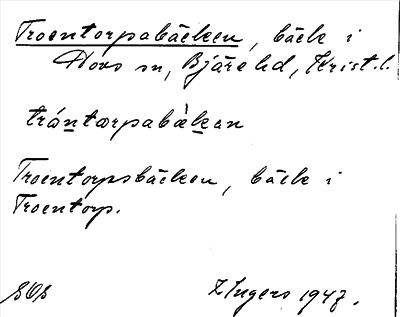 Troentorpabäcken, bäck i
Hovs sn, Bjäre hd, Krist. l.
tróntorpabækan
Troentorpsbäcken, bäck i
Troentorp.
SOs
E Ingers 1947.